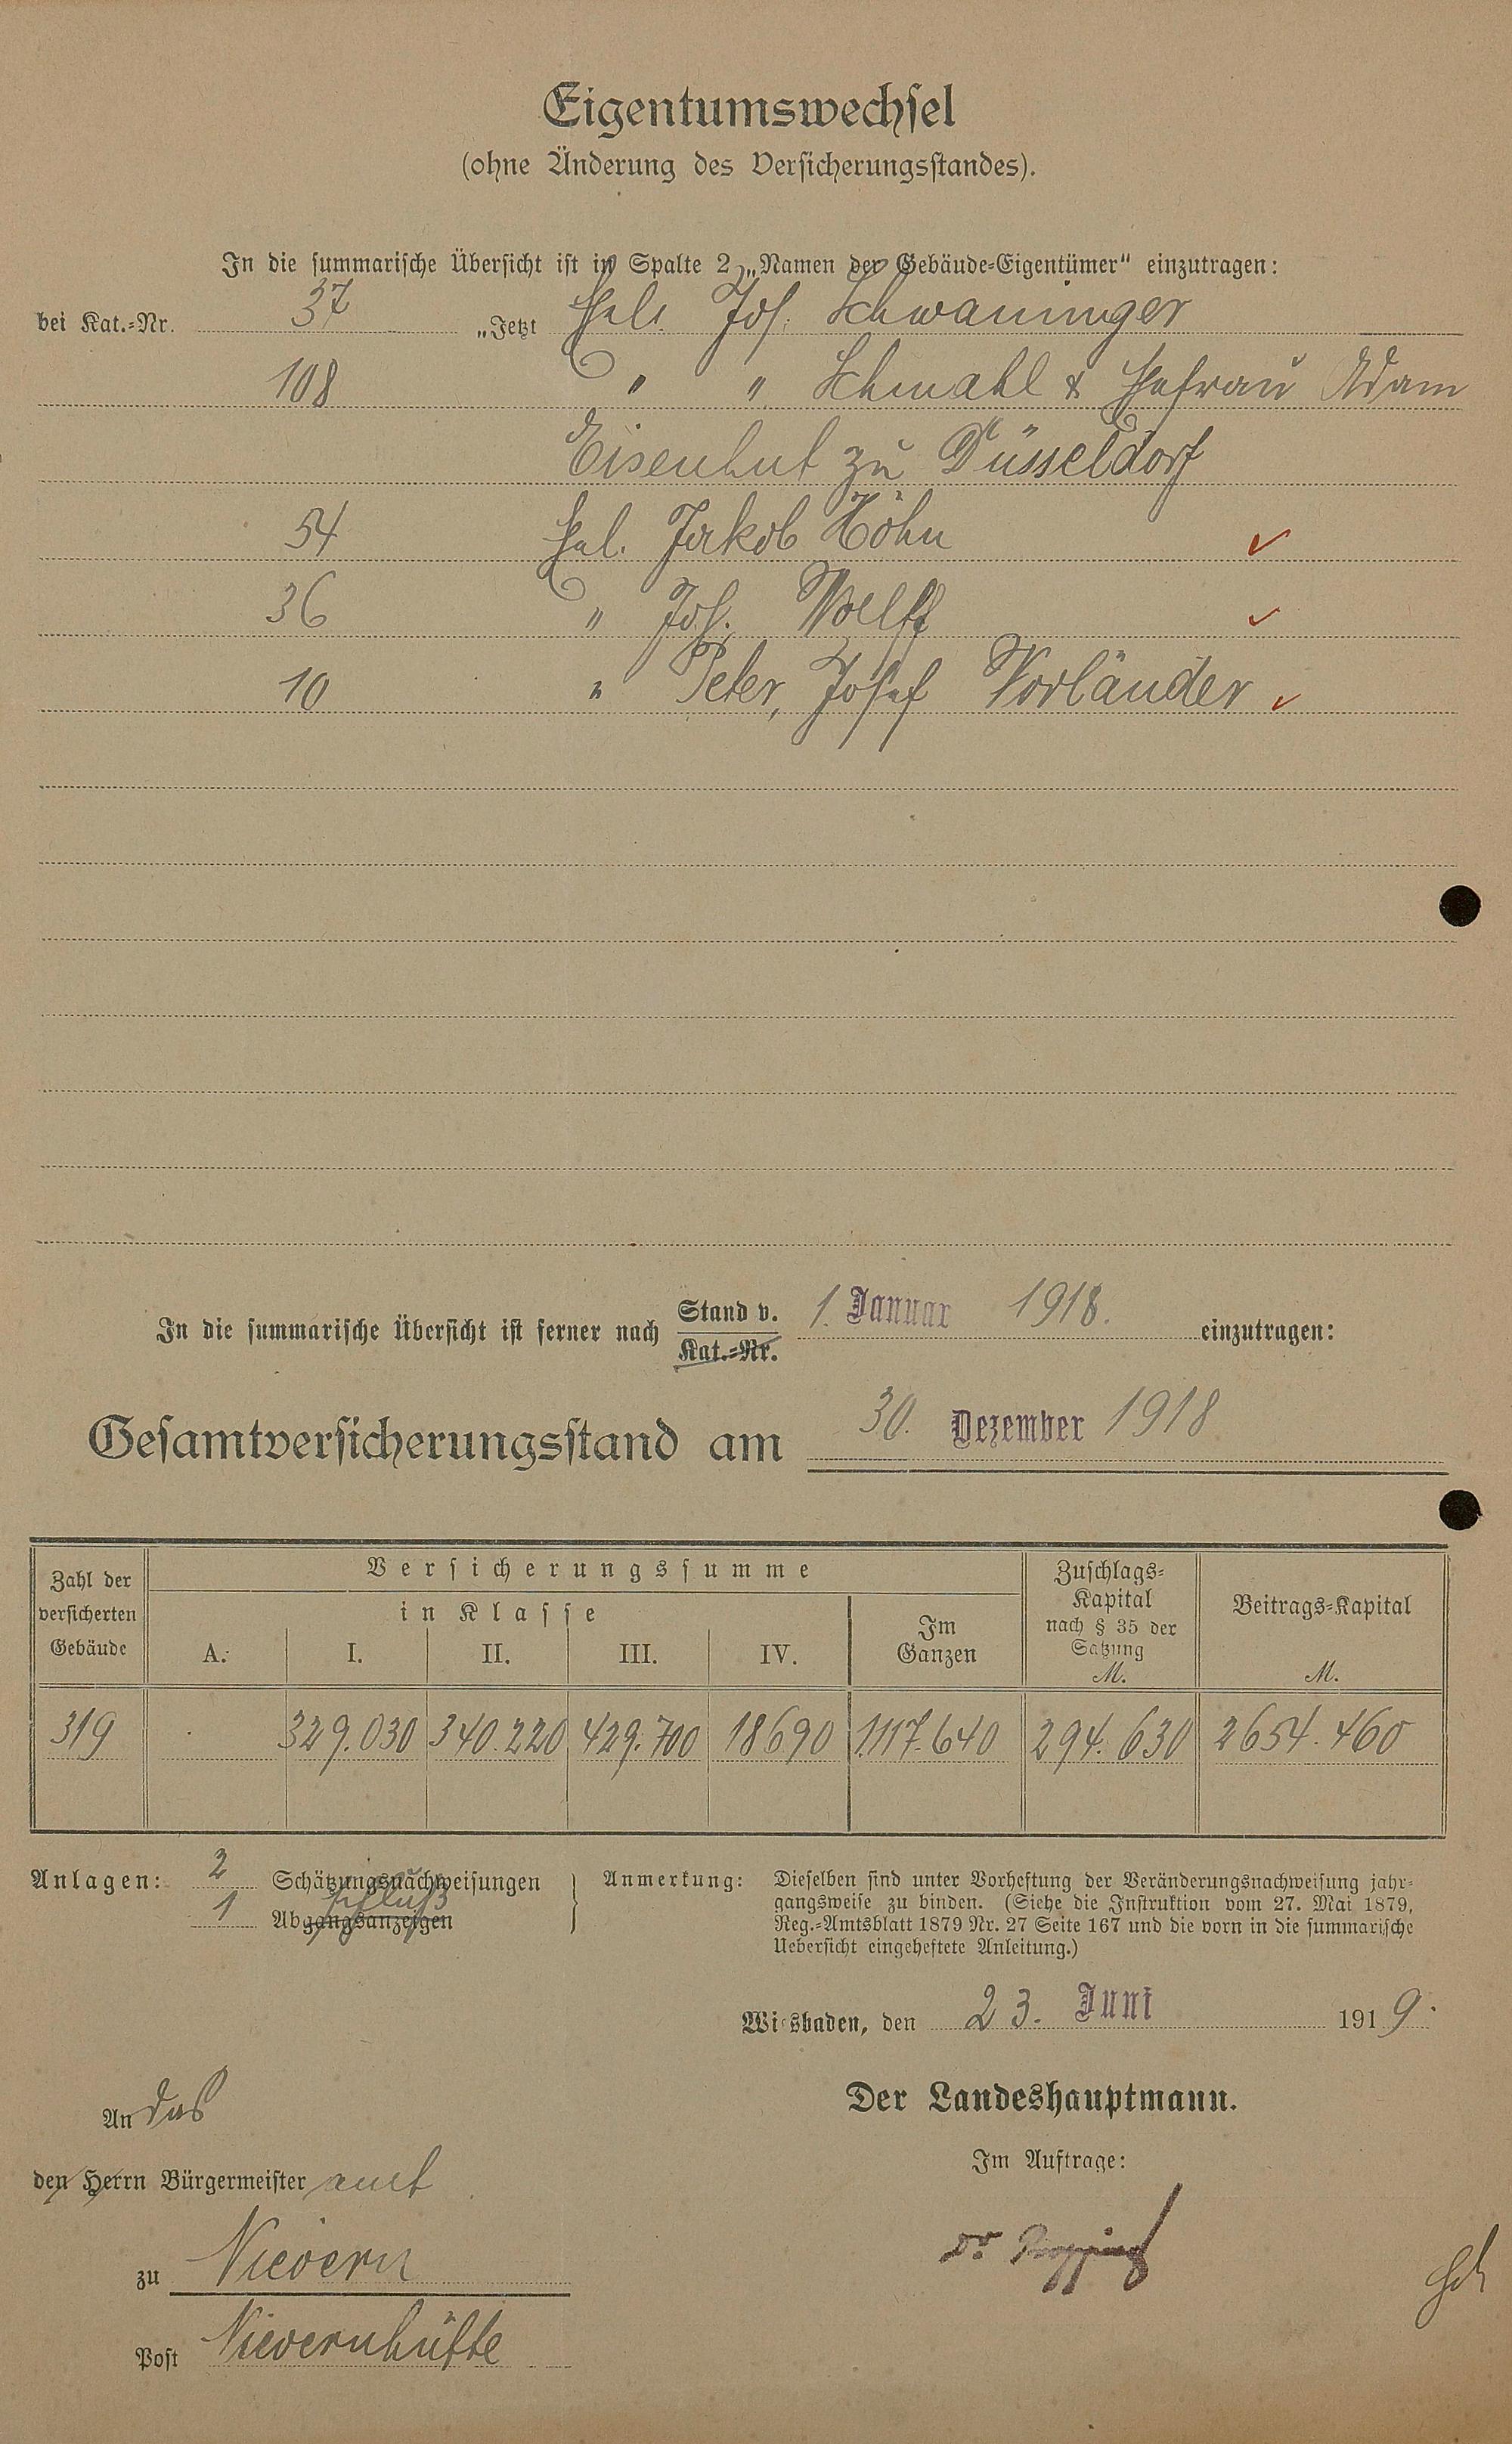 Eigentumswechsel
(ohne Änderung des Versicherungsstandes).
In die summarische Übersicht ist in Spalte 2 „Namen der Gebäude-Eigentümer" einzutragen:
bei Kat.-Nr. 37 „Jetzt Jos. Schwaninger
108 " " Schmahl & Ehefrau Adam
Eisenhut zu Düsseldorf
54 Jakob Höhn
36 " Jos. Wolff
10 " Peter, Josef Vorländer
In die summarische Übersicht ist ferner nach Stand v. 1. Januar 1918. einzutragen:
Kat.-Nr.
Gesamtversicherungsstand am 30. Dezember 1918
Zahl der versicherten Gebäude
Versicherungssumme
in Klasse
A. I. II. III. IV. Im Ganzen
Zuschlags-Kapital nach § 35 der Satzung M.
Beitrags-Kapital M.
319 . 329.030 340.220 429.700 18690 1.117.640 294.630 2654.460
Anlagen: 2 Schätzungsnachweisungen
1 Abgangsanzeigen schluß
Anmerkung: Dieselben sind unter Vorheftung der Veränderungsnachweisung jahr-
gangsweise zu binden. (Siehe die Instruktion vom 27. Mai 1879,
Reg.-Amtsblatt 1879 Nr. 27 Seite 167 und die vorn in die summarische
Uebersicht eingeheftete Anleitung.)
Wiesbaden, den 23. Juni 1919.
An das
den Herrn Bürgermeister amt
zu Nievern
Post Nievernhütte
Der Landeshauptmann.
Im Auftrage:
Dr.